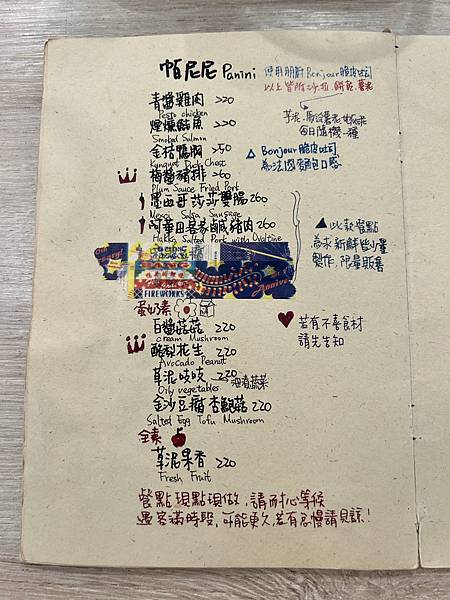 帕尼尼 Panini
使用朋廚Bonjour脆皮吐司
以上皆附沙拉.餅乾.薯泥
青醬雞肉 220
Pesto chicken
芋泥.馬鈴薯泥
每日隨機一種
煙燻鮭魚 220
Smoked Salmon
金桔鴨胸 250
Kumquat Duck Chest
▲ Bonjour脆皮吐司
為法國麵包口感
梅醬豬排 260
Plum Sauce Fried Pork
墨西哥莎莎雙腸 260
Mexco Salsa Sausage
阿華田客家鹹豬肉 260
Hakka Salted Pork with Ovaltine
▲ 以上餐點
為求新鮮皆少量
製作,限量販售
FIREWORKS
蛋奶素
白醬菇菇 220
cream Mushroom
酪梨花生 220
Avocado Peanut
若有不吃食材
請先告知
草泥吱吱 220
Oily vegetables
金沙豆腐杏鮑菇 220
Salted Egg Tofu Mushroom
全素
草泥果香 220
Fresh Fruit
餐點現點現做,請耐心等候
遇客滿時段,可能更久,若有怠慢請見諒!